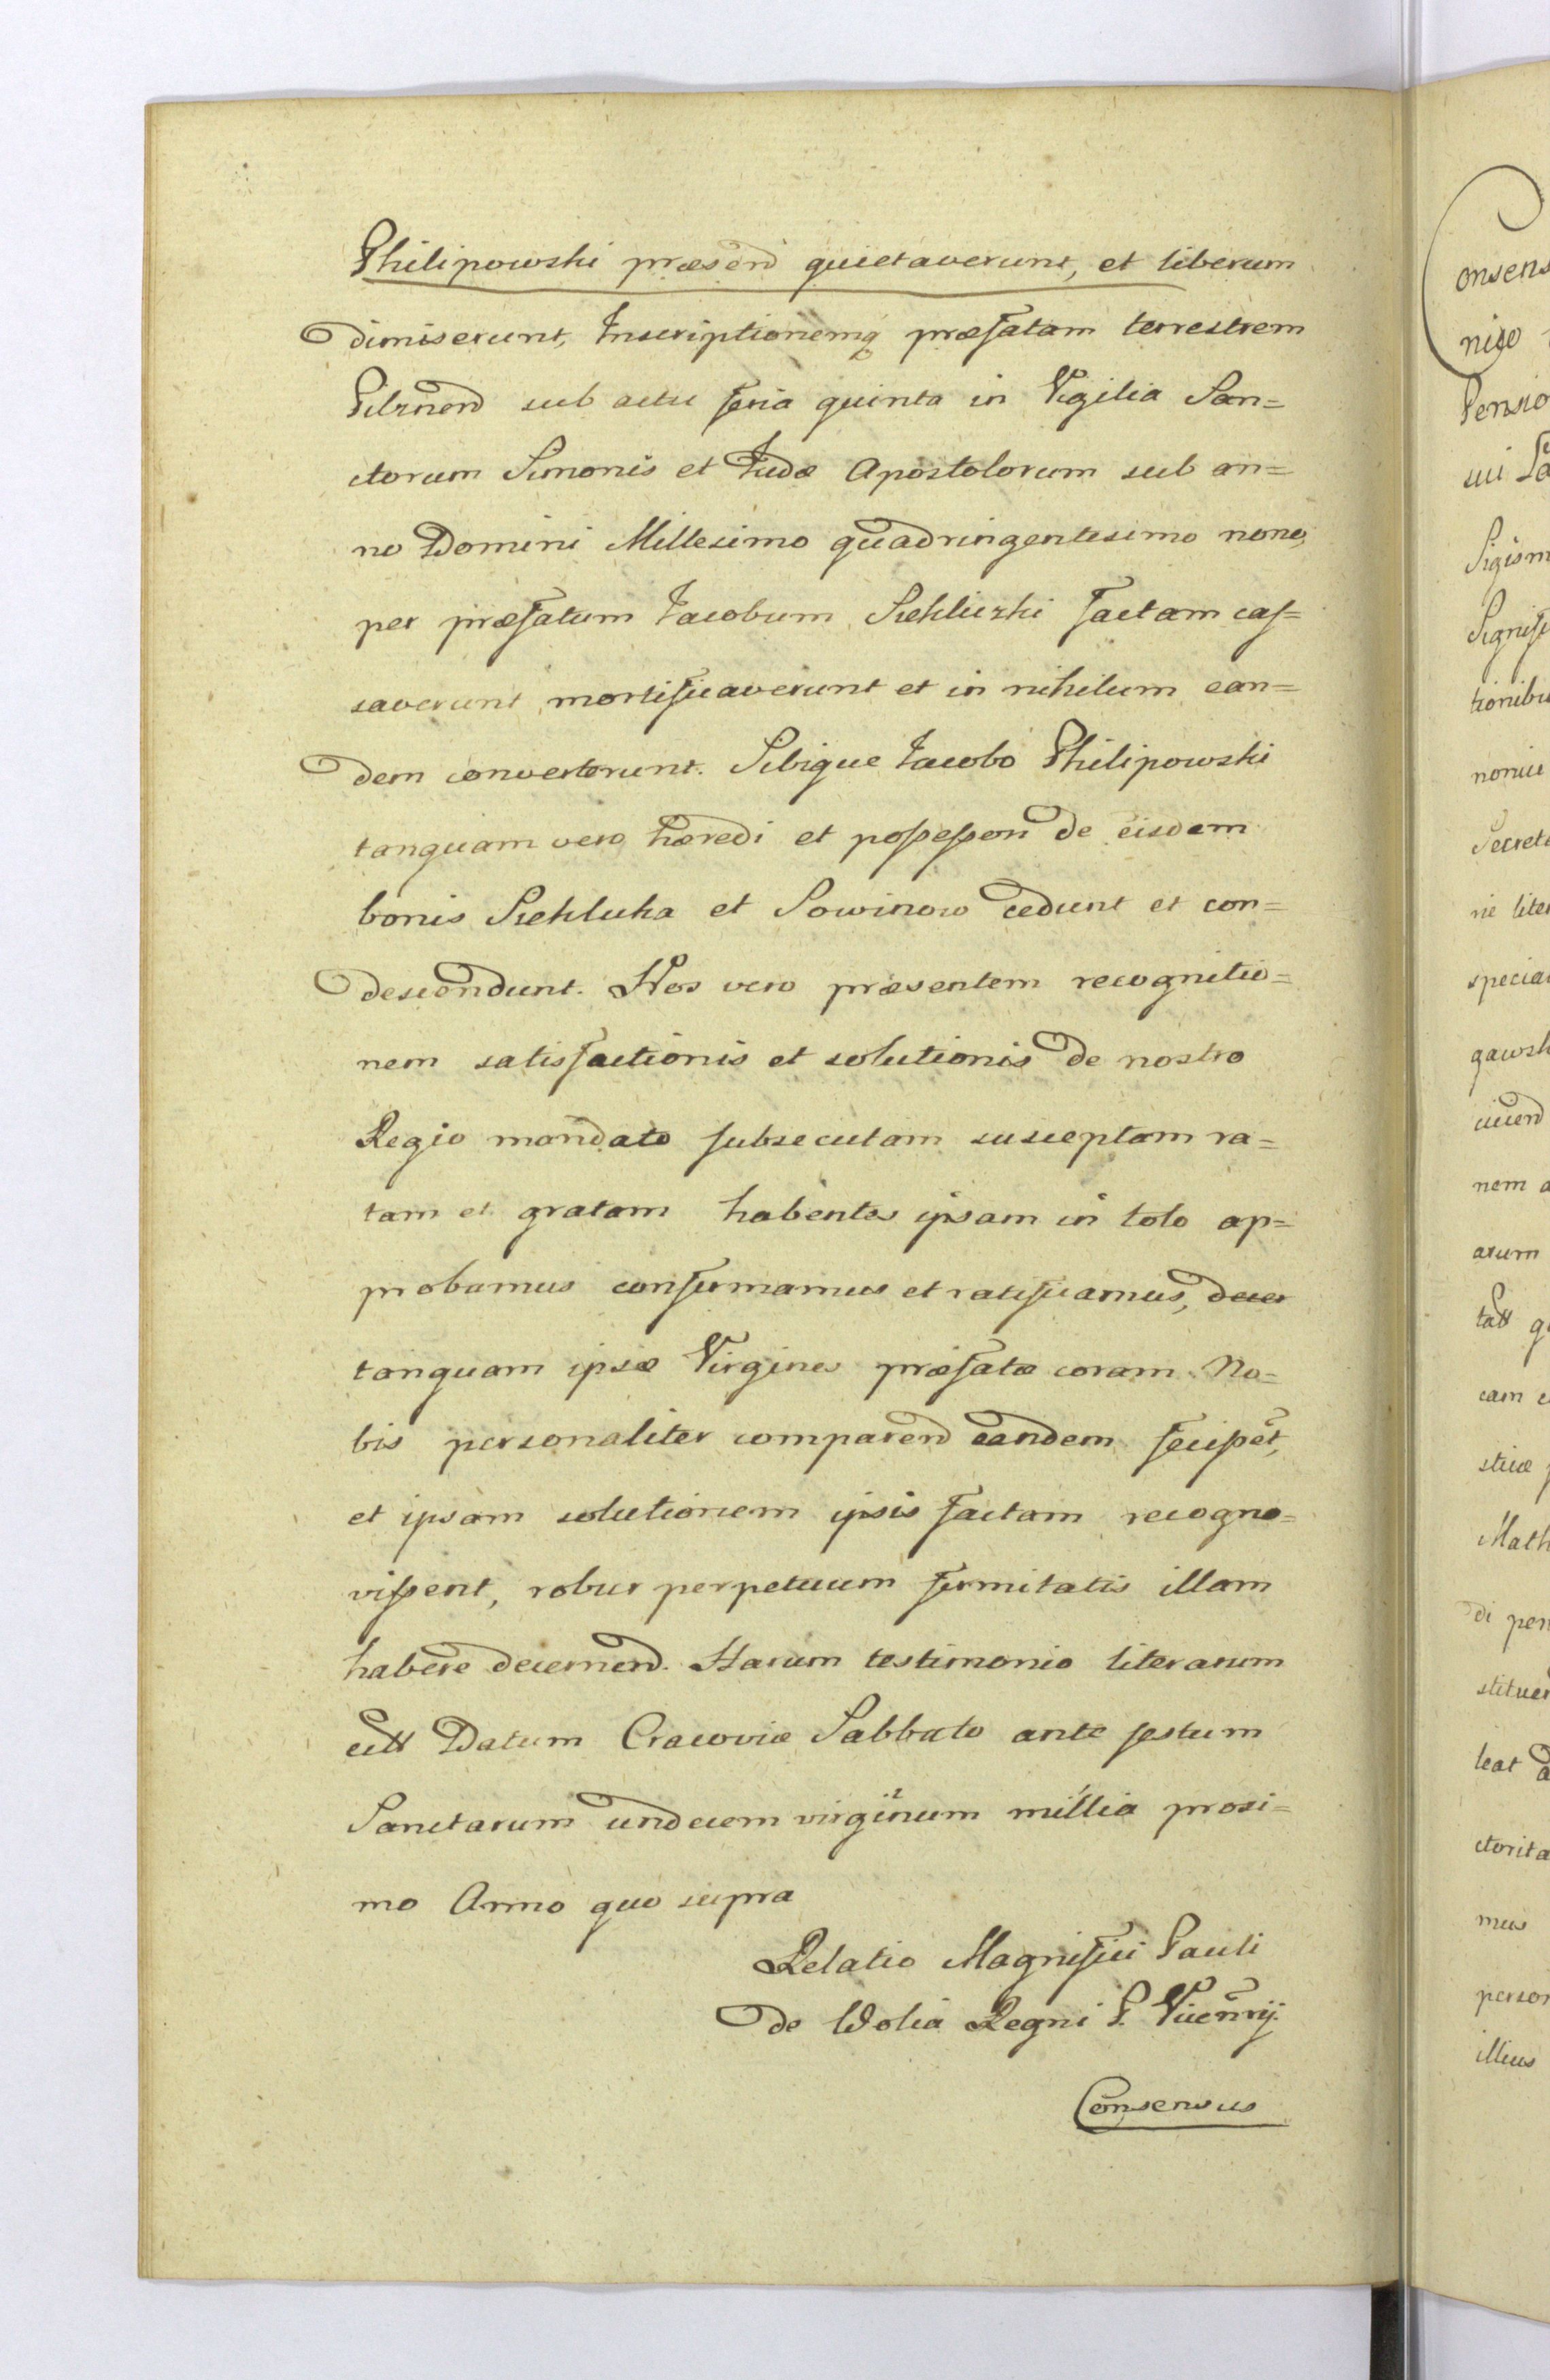 Philipowski præsend quietaverunt, et liberum
dimiserunt, Inscriptionemq præfatam terrestrem
Pilznend sub actu feria quinta in Vigilia San=
ctorum Simonis et Iudæ Apostolorum sub an=
no Domini Millesimo quadringentesimo nono,
per præfatum Iacobum Siekliczki factam cas=
saverunt mortificaverunt et in nihilum ean=
dem converterunt. Sibique Iacobo Philipowski
tanquam vero hæredi et possessori de eisdem
bonis Siekluka et Sowinow cedunt et con=
descendunt. Nos vero præsentem recognitio=
nem satisfactionis et solutionis de nostro
Regio mandato subsecutam susceptam ra=
tam et gratam habentes ipsam in toto ap=
probamus confirmamus et ratificamus,
tanquam ipsæ Virgines præfatæ coram No=
bis personaliter comparend eandem fecisset,
et ipsam solutionem ipsis factam recogno=
vissent, robur perpetuum firmitatis illam
habere decernend. Harum testimonio literarum
Datum Cracoviæ Sabbato ante festum
Sanctarum undecem virginum millia proxi=
mo Anno quo supra
Relatio Magnifici Pauli
de Wolia Regni P. Vicenrij.
Consensus
onsens
Pensio
sui
Sigism
Signifi
tionibu
Secret
rie liter
special
gawsk
nem a
arum
cam
Math
di pen
stituen
leat
ctorita
mus
person
illius